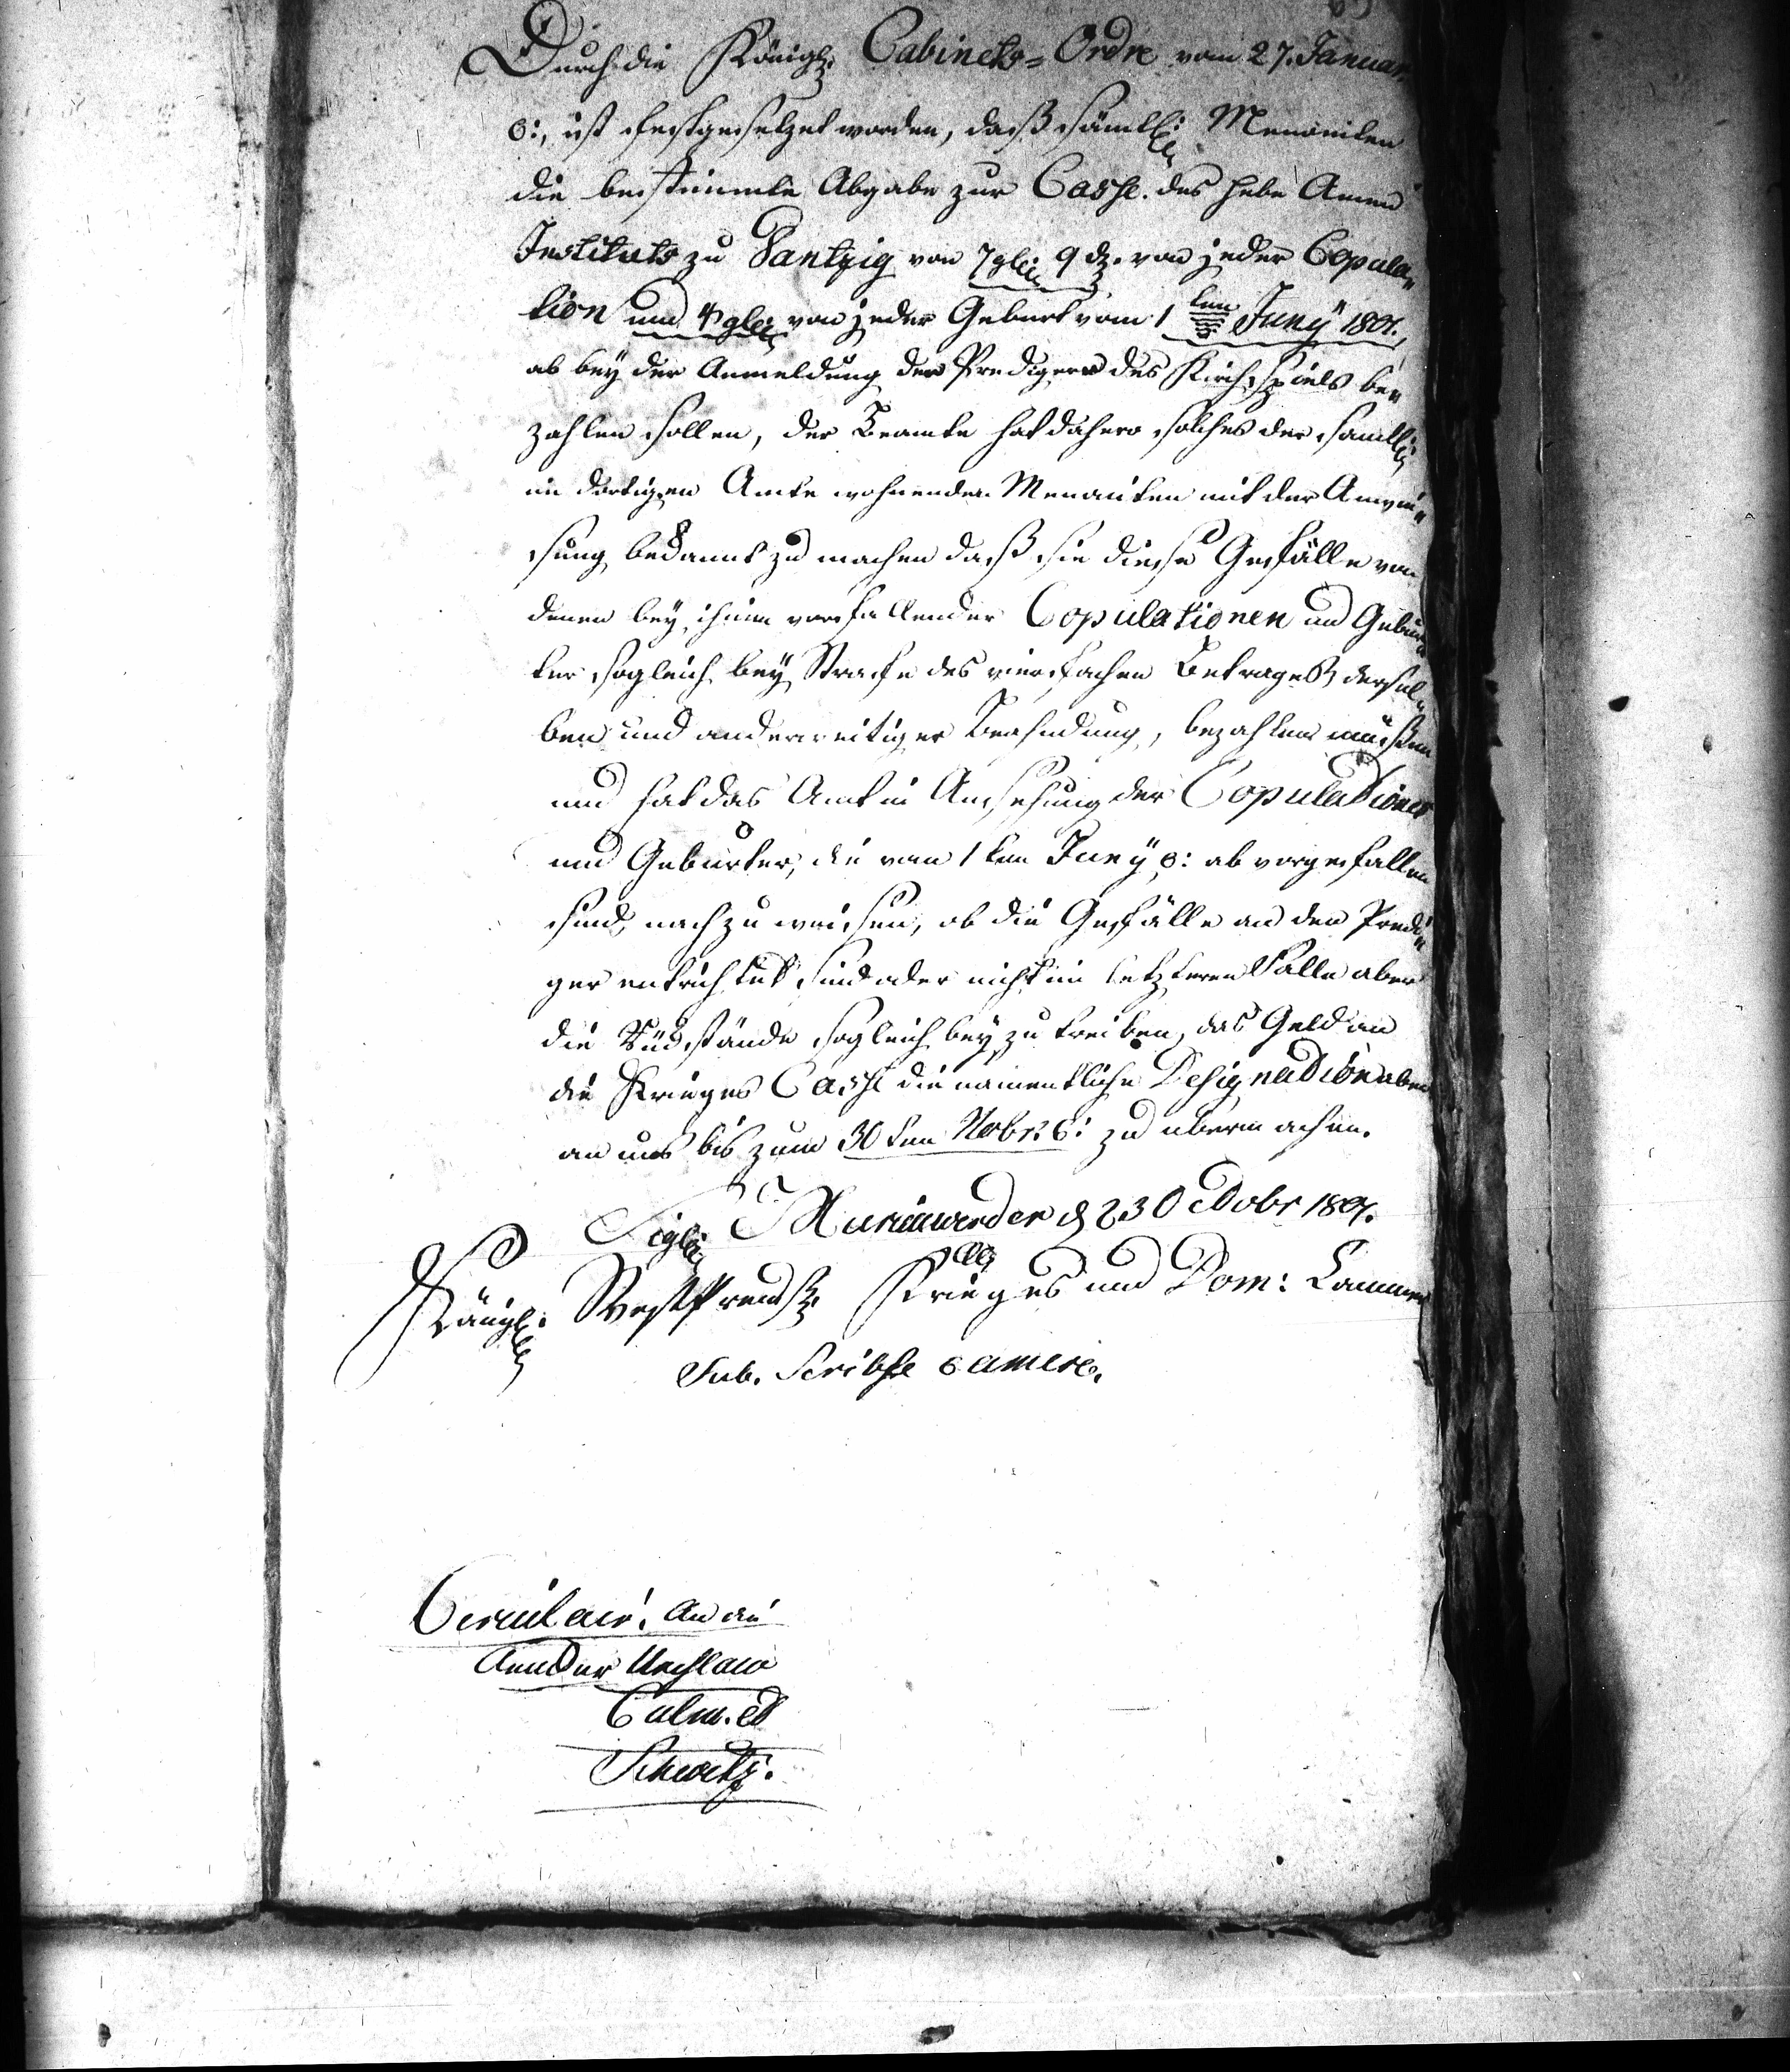 Durch die Königl. Cabinets=Ordre vom 27. Januar
c:, ist festgesetzet worden, daß sämtl: Menoniten
die bestimmte Abgabe zur Casse des Hebe Amen
Instituts zu Dantzig von 7 gl: 9 d. von jeder Copula„
tion und 4 gl: von jeder Geburt vom 1 ten Juny 1801.,
ab bey der Anmeldung des Predigers des Kirchspiels be„
zahlen sollen, der Beamte hat dahero solches der sämtl:
im dortigen Amte wohnenden Menoniten mit der Anwei„
sung bekannt zu machen daß sie diese Gefälle von
denen bey ihnen vorfallender Copulationen und Gebur„
ten sogleich bey Strafe des vierfachen Betrages dersel„
ben und anderweitiger Beahndung, bezahlen müßen
und hat das Amt in Ansehung der Copulationen
und Geburten, die vom 1 ten Juny c: ab vorgefallen
sind, nachzuweisen, ob die Gefälle an den Predi„
ger entrichtet sind oder nicht im letzteren Falle aber
die Rückstände sogleich bey zu treiben, das Geld an
die Krieges Casse die namentliche Designation aber
an uns bis zum 30 ten Nobr: c: zu übermachen.
Sigl: Marienwerder d 23 Octobr 1801.
Königl: Westpreuß. Krieges und Dom: Cammer
Sub. Scribse camere.
Circulair. An die
Aemter
Culm. et
Schwetz.